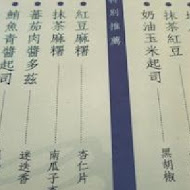 抹茶紅豆
奶油玉米起司
黑胡椒
特別推薦
紅豆麻糬
杏仁片
抹茶麻糬
南瓜子
蕃茄肉醬多茲
迷迭香
鮪魚青醬起司